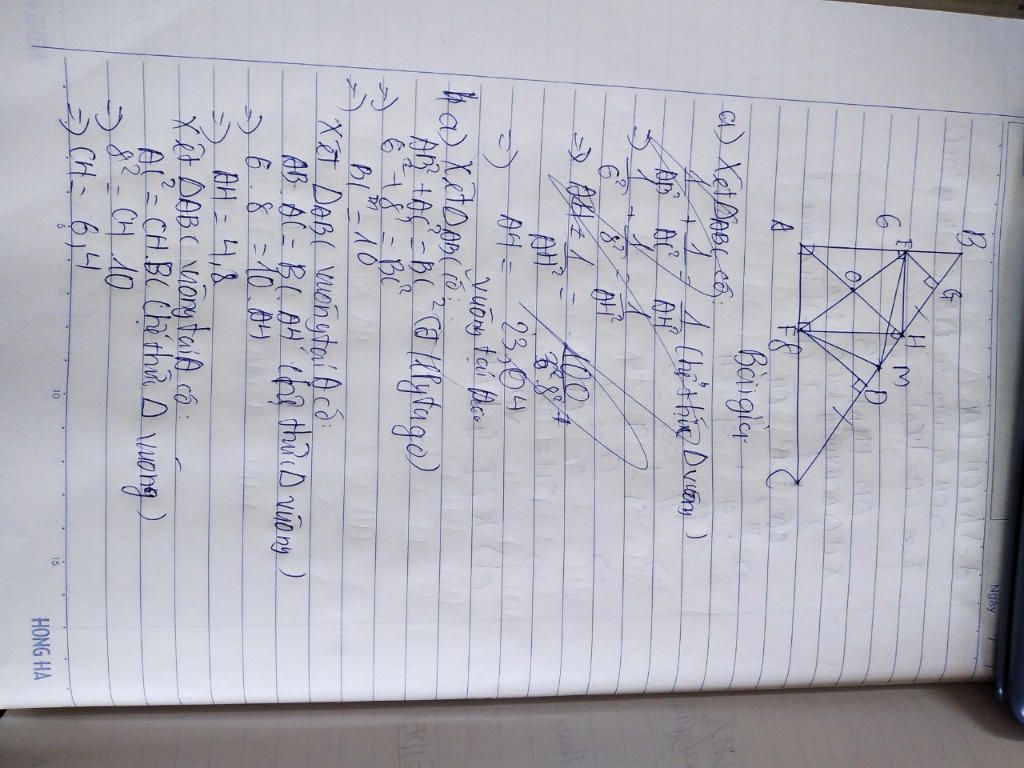 Ngày
B
G
E
6
H
O
M
D
A
F
8
C
Bài giải
a) Xét ΔABC có:
1/AB² + 1/AC² = 1/AH² (hệ thức Δ vuông)
=) 1/6² + 1/8² = 1/AH²
AH² =
=) AH = 23,04
a) Xét ΔABC có: vuông tại
AB² + AC² = BC² (ĐL Pytago)
=) 6² + 8² = BC²
=) BC = 10
Xét ΔABC vuông tại A có:
AB . AC = BC . AH (hệ thức Δ vuông)
=) 6 . 8 = 10 . AH
=) AH = 4,8
Xét ΔABC vuông tại A có:
AC² = CH.BC (hệ thức Δ vuông)
=) 8² = CH . 10
=) CH = 6,4
5
10
15
HONG HA